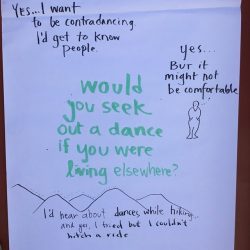 Yes... I want
to be contradancing.
I'd get to know
people.
yes...
But it
might not
be comfortable
would
you seek
out a dance
if you were
living elsewhere?
I'd hear about dances while hiking...
and yes, I tried but I couldn't
hitch a ride